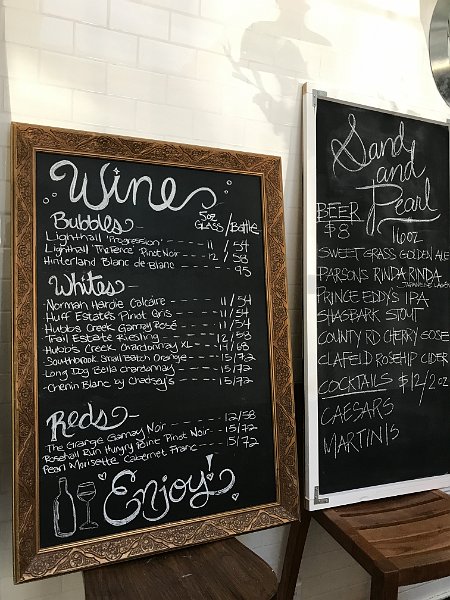 Wine
5oz GLASS / Bottle
Bubbles
Lighthall 'Progression' 11 / 54
Lighthall The Fence Pinot Noir 12 / 58
Hinterland Blanc de Blanc 95
Whites
Norman Hardie Calcaire 11/54
Huff Estates Pinot Gris 11/54
Hubbs Creek Gamay Rosé 11/54
Trail Estate Riesling 12/58
Hubbs Creek Chardonnay XL 13/68
Southbrook Small Batch Orange 15/72
Long Dog Bella Chardonnay 15/72
Chenin Blanc by Chadsey's 15/72
Reds
The Grange Gamay Noir 12/58
Rosehall Run Hungry Point Pinot Noir 15/72
Pearl Morissette Cabernet Franc 15/72
Enjoy!
Sand and Pearl
BEER 16oz
$8
SWEET GRASS GOLDEN ALE
PARSONS RINDA RINDA
PRINCE EDDY'S IPA
SHAGBARK STOUT
COUNTY RD CHERRY GOSE
CLAFELD ROSEHIP CIDER
COCKTAILS $12/2oz
CAESARS
MARTINIS